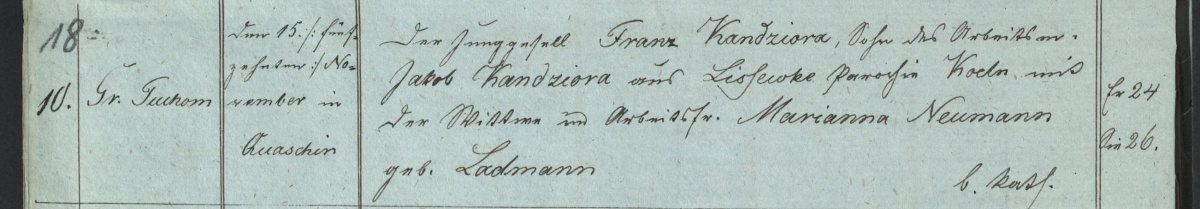 18
10.
Gr. Tuchom
den 15. /: fünf-
zehnten :/ No-
vember in
Quaschin
Der Junggesell Franz Kandziora, Sohn des Arbeitsm.
Jakob Kandziora aus Lissewke Parochie Koeln mit
der Wittwe und Arbeitsfr. Marianna Neumann
geb. Ladmann
b. kath.
Er 24
Sie 26.